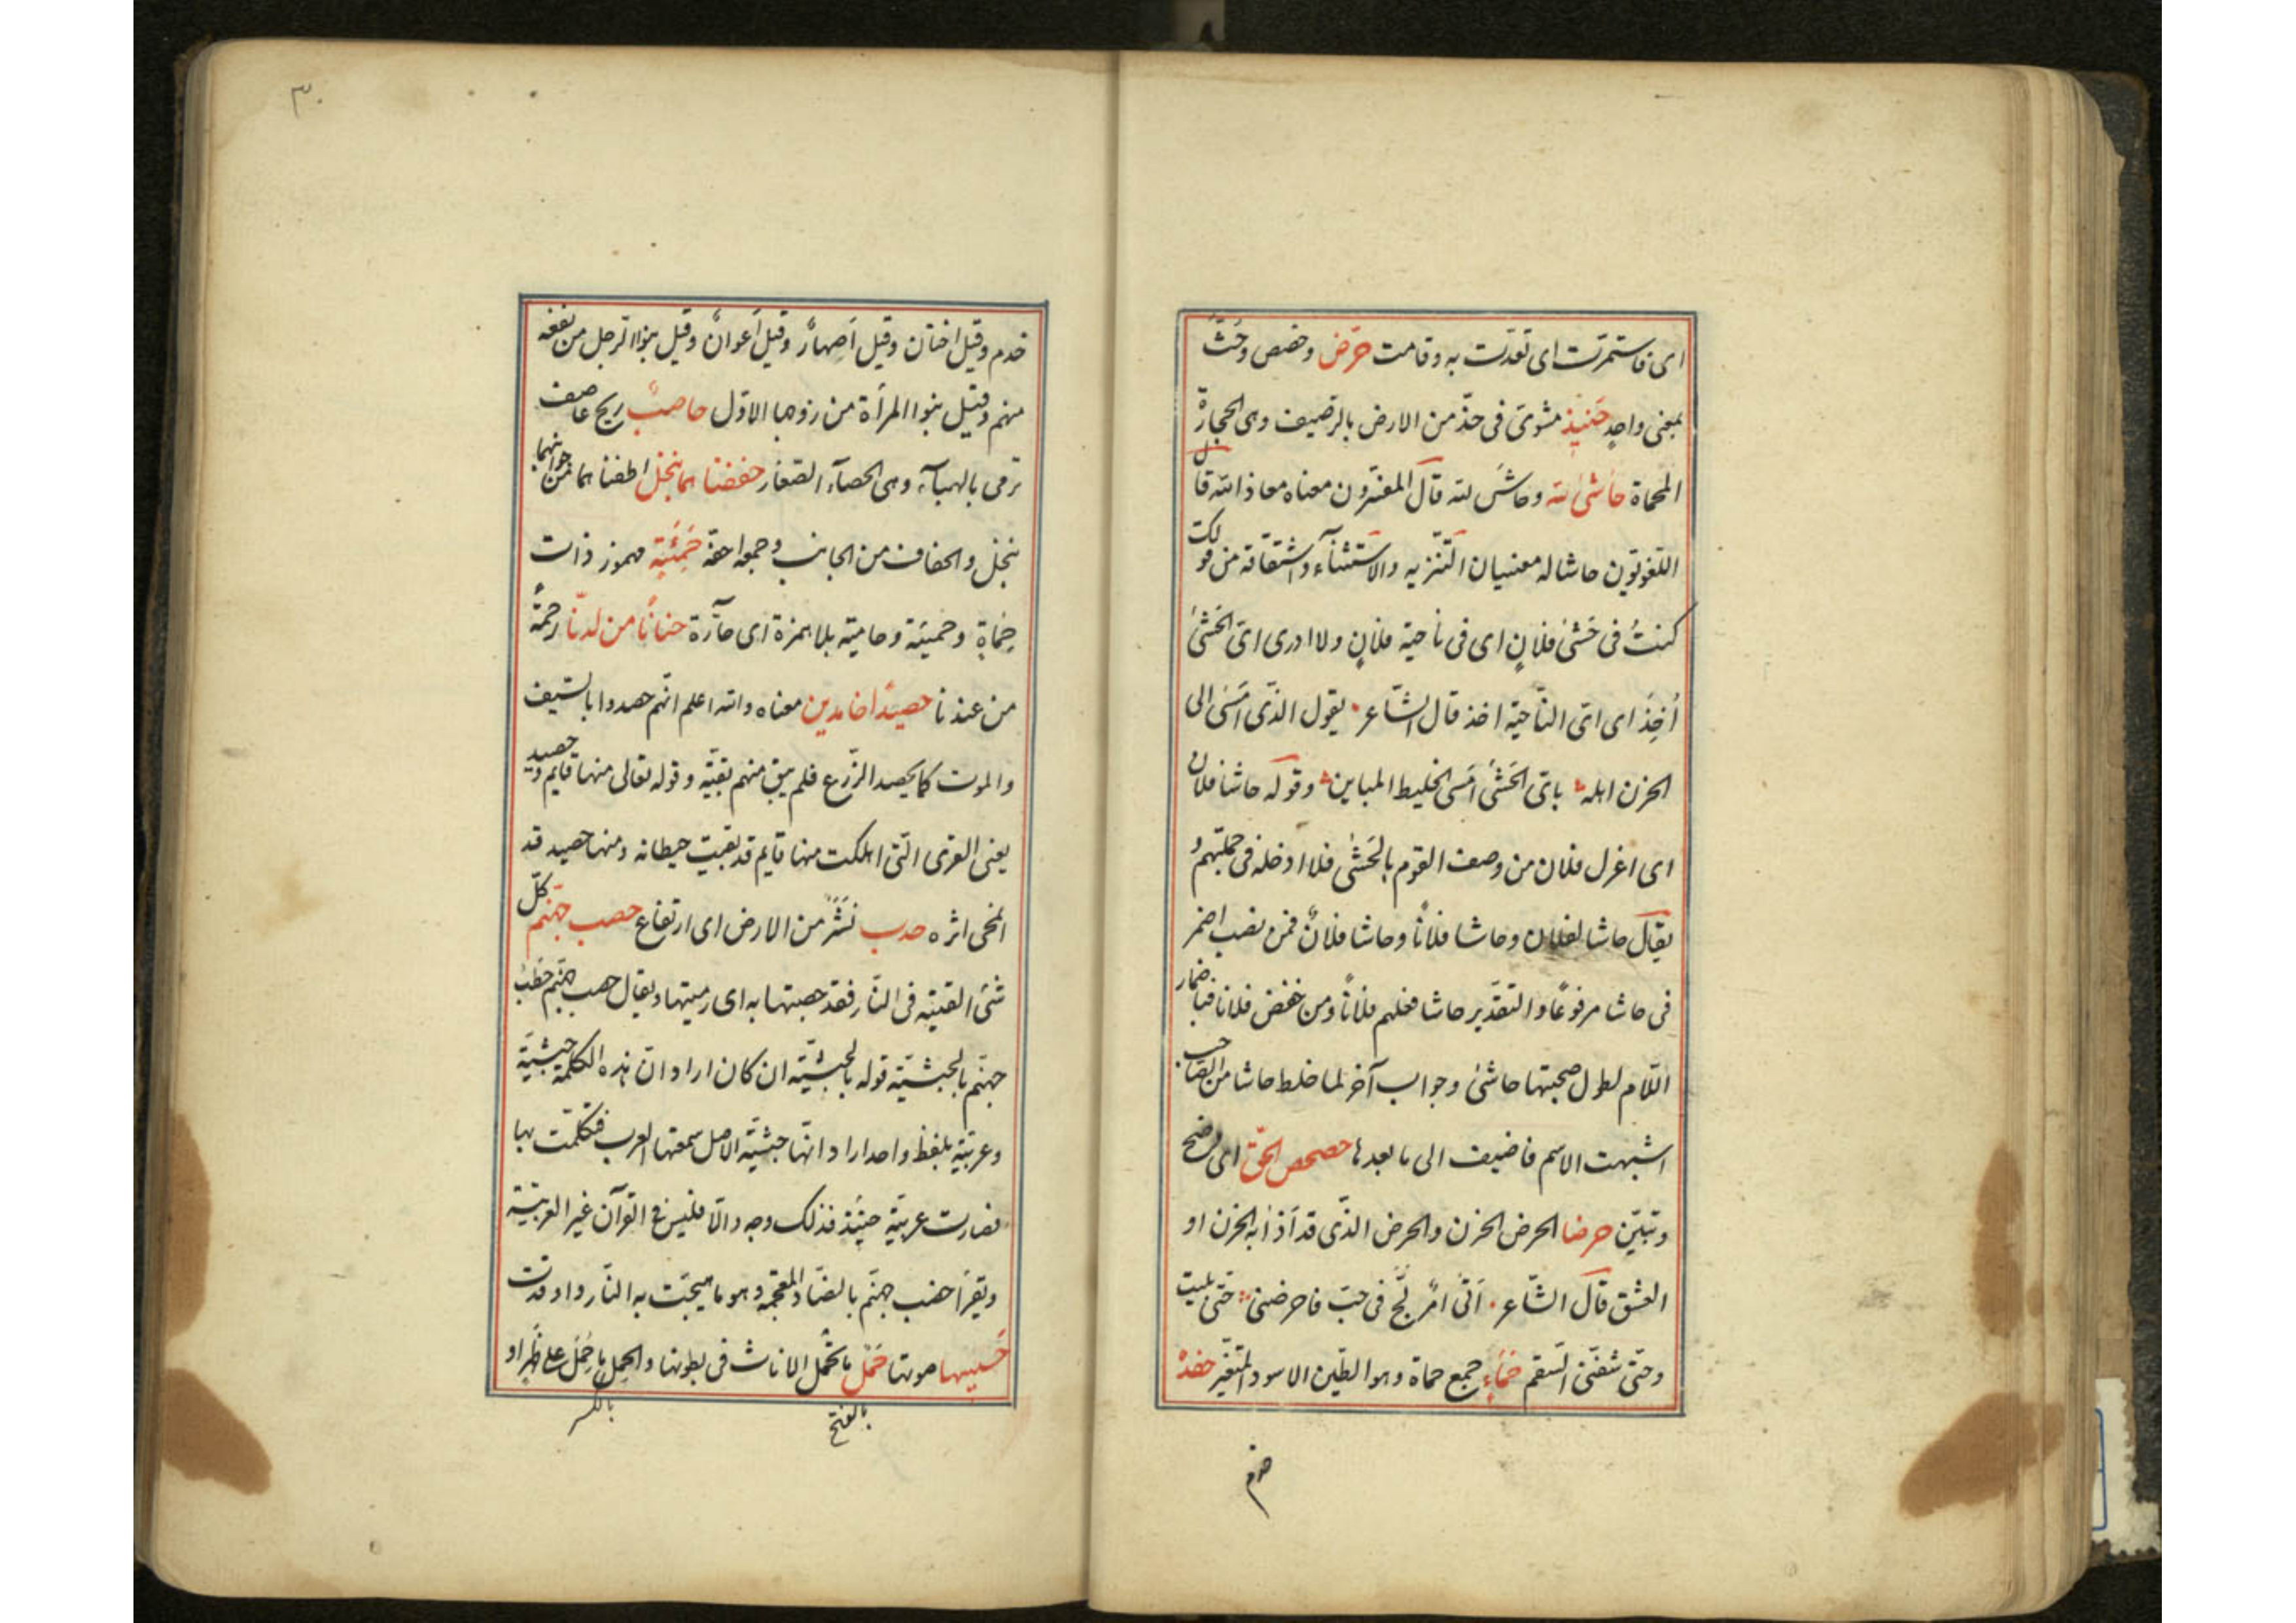 اى فاستمرّت اى تعدّت به وقامت حرّض وحضض وحثّ
بمعنى واحدٍ حَنيذٍ مشوىّ فى خدّ من الارض بالرّضيف وهى الحجارةّ
المحماة حاشىٰ لله وحاشَ لله قال المفسّرون معناه معاذ الله قال
اللّغويّون حاشا له معنيان التّنزيه والاستثنآء واشتقاقه من قولك
كنتُ فى حَشىٰ فلانٍ اى فى ناحية فلانٍ ولا ادرى اىّ الحَشىٰ
أُخِذَ اى اىّ النّاحية اخذ قال الشّاعر يقول الذّى امَسَى الى
الحزن اهله باىّ الحَشَى امَسى الخليط المباين وقوله حاشا فلان
اى اعزل فلان من وصف القوم بالحَشىٰ فلا ادخله فى جملتهم و
يقال حاشا لفلان وحاشا فلانًا وحاشا فلانٌ فمن نصب اضمر
فى حاشا مرفوعًا والتقدّير حاشا فعلهم فلانًا ومن خفض فلانا فباضمار
اللّام لطول صحبتها حاشىٰ وجواب آخر لما خلط حاشا من الصّاحب
اشبهت الاسم فاضيف الى ما بعدها حصحص الحقّ اى وضح
وتبيّن حرضا الحرض الحزن والحرض الذّى قد اَذابه الحزن او
العشق قال الشّاعر انّى امرٌ لجّ فى حبّ فاحرضنى حتّى بليت
وحتّى شفّنى السّقم حَمَاءٍ جمع حماة وهو الطّين الاسود المتغيّر حفدةً
خدم
٣٠
خدم وقيل اختان وقيل اَصهارٌ وقيل اَعوانٌ وقيل بنوا الرّجل من نفعه
منهم وقيل بنوا المرأة من زوجها الاوّل حاصبًا ريح عاصف
ترمى بالهبآء وهى الحصآء الصّغار حففنا هما بنخل اطفنا هما من جوانبهما
بنخل والحفاف من الجانب وجمعه احفّة حَمِئَةٍ مهموز ذات
حِمَاةٍ وحميّة وحامية بلا همزة اى حآرّة حنانًا من لدنّا رحمةً
من عندنا حصيدًا خامدين معناه والله اعلم انّهم حصدوا بالسّيف
والموت كما يحصد الزّرع فلم يبق منهم بقيّة وقوله تعالى منها قايم وحصيد
يعنى القرى الّتى اهلكت منها قايم قد بقيت حيطانه ومنها حصيد قد
امّحى اثره حدب نَشَزٌ من الارض اى ارتفاع حصب جهنّم كلّ
شئ القيته فى النّار فقد حصبتها به اى رميتها ويقال حصب جهنّم حَطَبُ
جهنّم بالحبشيّة قوله بالحبشيّة ان كان اراد انّ هذه الكلمة حبشيّة
وعربيّة بلفظ واحد اراد انّها حبشيّة الاصل سمعتها العرب فتكلّمت بها
فصارت عربيّة حينئذ فذلك وجه والّا فليس فى القرآن غير العربيّة
ويقرأ حضب جهنّم بالضّاد المعجمة وهو ما هيّجت به النّار واوقدت
حَسيسها صوتها حَمْل ما تحمل الاناث فى بطونها والحِمل ما حُمِل على ظهر او
بالفتح
بالكسر